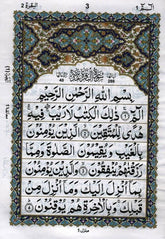 الم ١ 3 البقرة ٢
بِسْمِ اللهِ الرَّحْمٰنِ الرَّحِيْمِ
الٓمّٓ ۚ ذٰلِكَ الْكِتٰبُ لَا رَيْبَ ۛ فِيْهِ ۛ
هُدًى لِّلْمُتَّقِيْنَ ۙ الَّذِيْنَ يُؤْمِنُوْنَ
بِالْغَيْبِ وَيُقِيْمُوْنَ الصَّلٰوةَ وَمِمَّا
رَزَقْنٰهُمْ يُنْفِقُوْنَ ۙ وَالَّذِيْنَ يُؤْمِنُوْنَ
بِمَآ اُنْزِلَ اِلَيْكَ وَمَآ اُنْزِلَ مِنْ
قَبْلِكَ ۚ وَبِالْاٰخِرَةِ هُمْ يُوْقِنُوْنَ ؕ
منزل ١